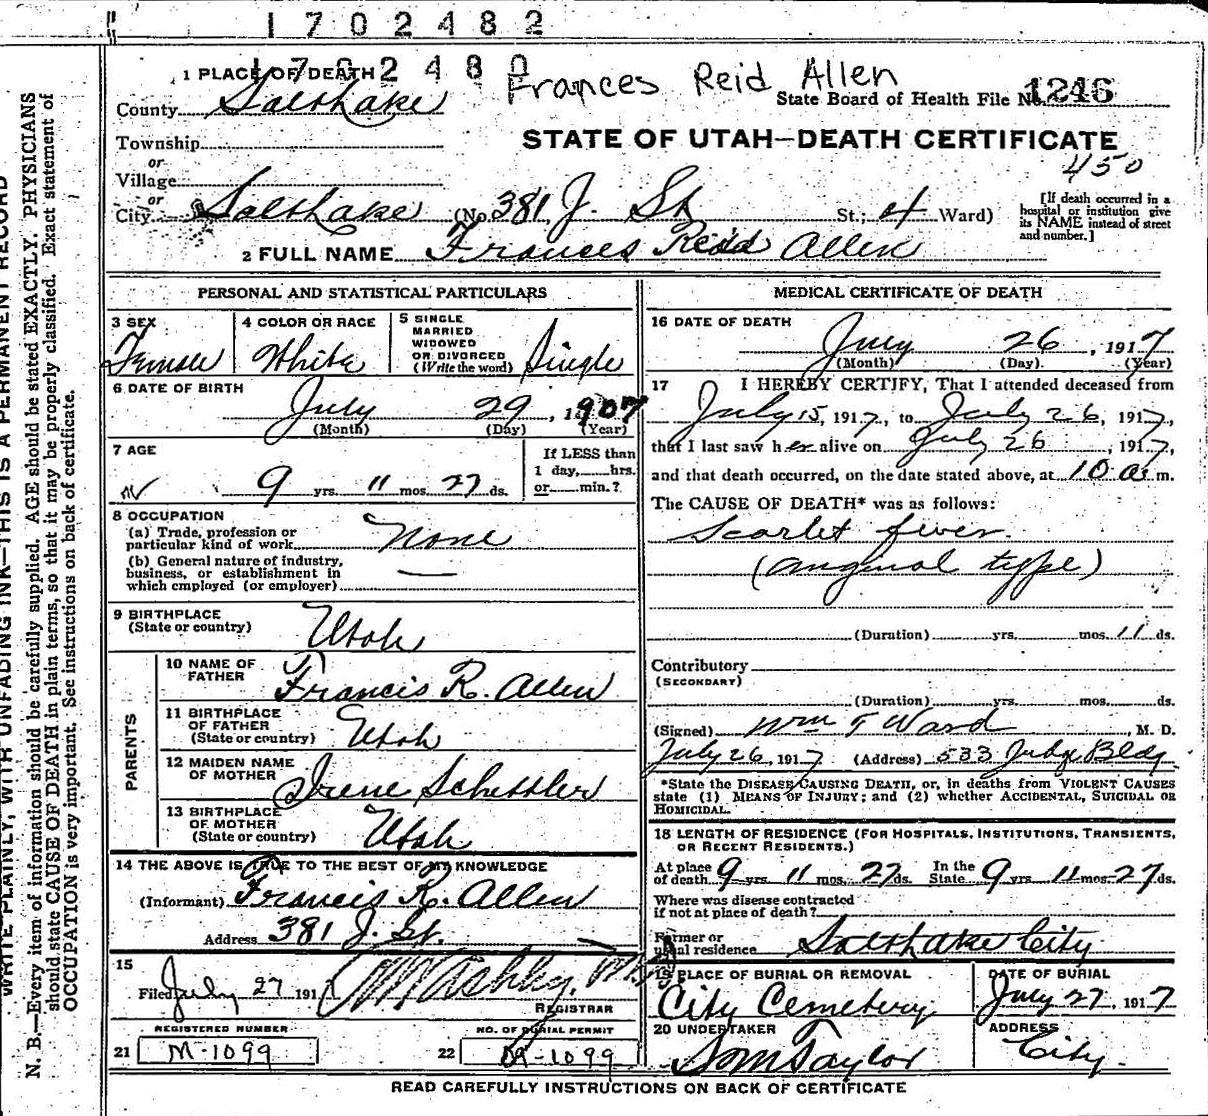 1702482
1702480
Frances Reid Allen
1 PLACE OF DEATH
County Salt Lake
State Board of Health File No. 1246
STATE OF UTAH—DEATH CERTIFICATE
450
Township
or
Village
or
City Salt Lake (No. 381 J. St St.; 4 Ward)
[If death occurred in a hospital or institution give its NAME instead of street and number.]
2 FULL NAME Frances Reid Allen
PERSONAL AND STATISTICAL PARTICULARS
3 SEX Female
4 COLOR OR RACE White
5 SINGLE MARRIED WIDOWED OR DIVORCED (Write the word) Single
6 DATE OF BIRTH
July 29, 1907
(Month) (Day) (Year)
7 AGE
9 yrs. 11 mos. 27 ds.
If LESS than 1 day, hrs. or min.?
8 OCCUPATION
(a) Trade, profession or particular kind of work None
(b) General nature of industry, business, or establishment in which employed (or employer) —
9 BIRTHPLACE
(State or country) Utah
PARENTS
10 NAME OF FATHER Francis R. Allen
11 BIRTHPLACE OF FATHER (State or country) Utah
12 MAIDEN NAME OF MOTHER Irene Schettler
13 BIRTHPLACE OF MOTHER (State or country) Utah
14 THE ABOVE IS TRUE TO THE BEST OF MY KNOWLEDGE
(Informant) Francis R. Allen
Address 381 J. St.
15
Filed July 27 1917
REGISTRAR
REGISTERED NUMBER
21 M-1099
NO. OF BURIAL PERMIT
22 M-1099
MEDICAL CERTIFICATE OF DEATH
16 DATE OF DEATH
July 26, 1917
(Month) (Day). (Year)
17 I HEREBY CERTIFY, That I attended deceased from
July 15, 1917, to July 26, 1917,
that I last saw her alive on July 26, 1917,
and that death occurred, on the date stated above, at 10 a.m.
The CAUSE OF DEATH* was as follows:
Scarlet fever
(anginal type)
(Duration) yrs. mos. 11 ds.
Contributory
(SECONDARY)
(Duration) yrs. mos. ds.
(Signed) Wm T Ward, M. D.
July 26, 1917 (Address) 533 Judge Bldg.
*State the DISEASE CAUSING DEATH, or, in deaths from VIOLENT CAUSES
state (1) MEANS OF INJURY; and (2) whether ACCIDENTAL, SUICIDAL OR
HOMICIDAL.
18 LENGTH OF RESIDENCE (FOR HOSPITALS, INSTITUTIONS, TRANSIENTS,
OR RECENT RESIDENTS.)
At place of death 9 yrs 11 mos. 27 ds. In the State 9 yrs. 11 mos 27 ds.
Where was disease contracted
if not at place of death?
Former or usual residence Salt Lake City
19 PLACE OF BURIAL OR REMOVAL
City Cemetery
DATE OF BURIAL
July 27, 1917
20 UNDERTAKER
ADDRESS
City.
READ CAREFULLY INSTRUCTIONS ON BACK OF CERTIFICATE
WRITE PLAINLY, WITH UNFADING INK—THIS IS A PERMANENT RECORD
N. B.—Every item of information should be carefully supplied. AGE should be stated EXACTLY. PHYSICIANS
should state CAUSE OF DEATH in plain terms, so that it may be properly classified. Exact statement of
OCCUPATION is very important. See instructions on back of certificate.